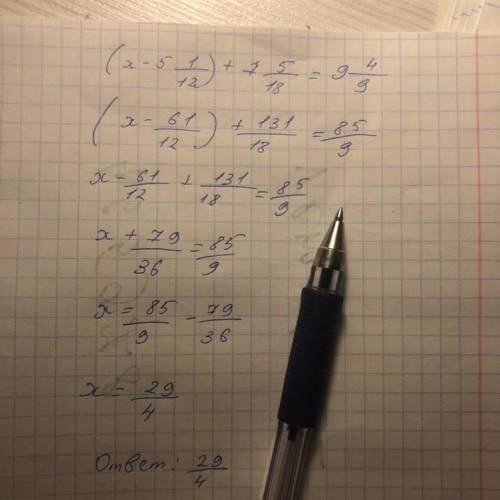 (x - 5 1/12) + 7 5/18 = 9 4/9
(x - 61/12) + 131/18 = 85/9
x - 61/12 + 131/18 = 85/9
x + 79/36 = 85/9
x = 85/9 - 79/36
x = 29/4
Ответ: 29/4